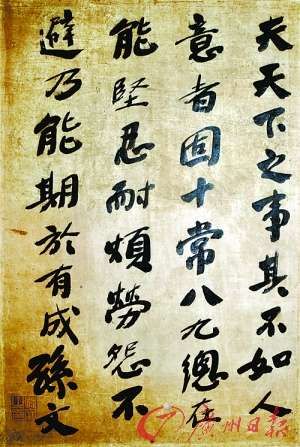 夫天下之事其不如人
意者固十常八九總在
能堅忍耐煩勞怨不
避乃能期於有成孫文
廣州日報